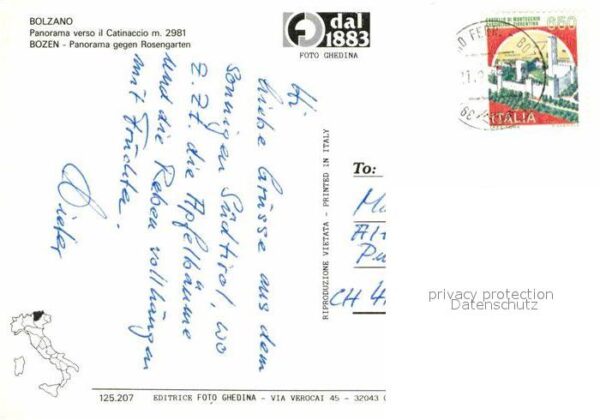 BOLZANO
Panorama verso il Catinaccio m. 2981
BOZEN - Panorama gegen Rosengarten
dal
1883
FOTO GHEDINA
CASTELLO DI MONTECCHIO
CASTIGLION FIORENTINO
650
ITALIA
Hi
liebe Grüsse aus dem
sonnigen Südtirol, wo
z.Zt. die Apfelbäume
und die Reben vollhängen
mit Früchte.
Dieter
RIPRODUZIONE VIETATA - PRINTED IN ITALY
To:
CH 4
privacy protection
Datenschutz
125.207
EDITRICE FOTO GHEDINA - VIA VEROCAI 45 - 32043